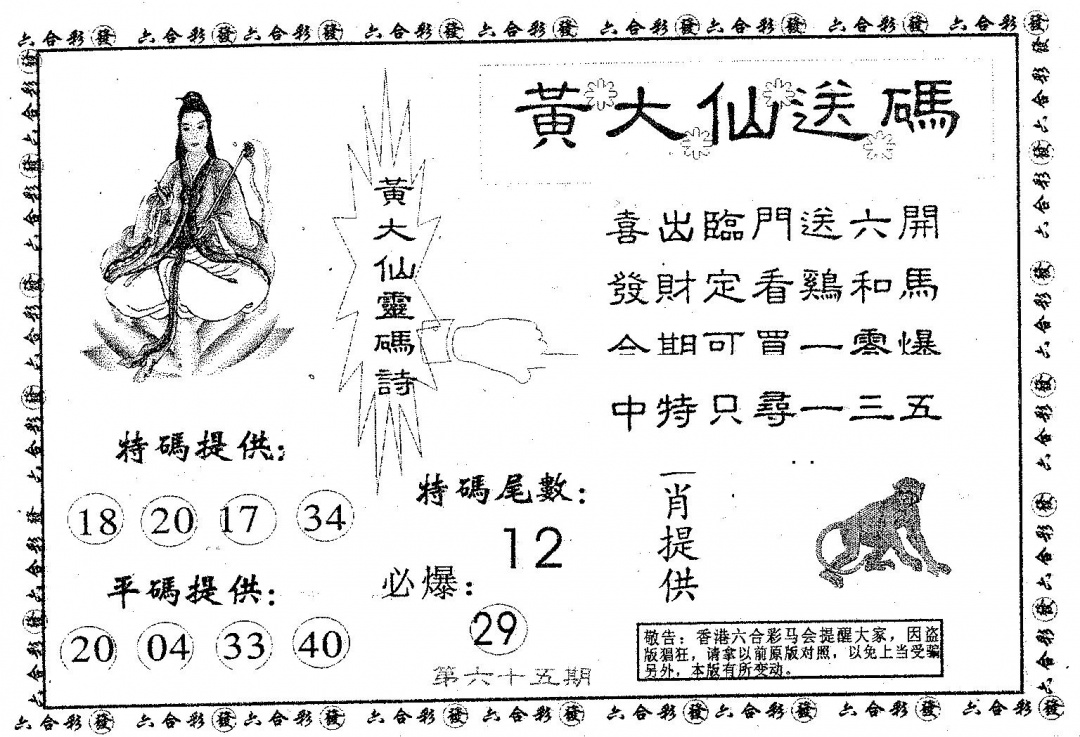 六合彩發 六合彩發六合彩發 六合彩發 六合彩發 六合彩發六合彩發 六合彩發 六合彩發
黃大仙送碼
黃大仙靈碼詩
喜出臨門送六開
發財定看鷄和馬
今期可買一零爆
中特只尋一三五
特碼提供：
18 20 17 34
平碼提供：
20 04 33 40
特碼尾數：
12
必爆：
29
第六十五期
一肖提供
敬告：香港六合彩马会提醒大家，因盗
版猖狂，请拿以前原版对照，以免上当受骗
另外，本版有所变动。
六合彩發 六合彩發六合彩發 六合彩發 六合彩發 六合彩發六合彩發 六合彩發 六合彩發